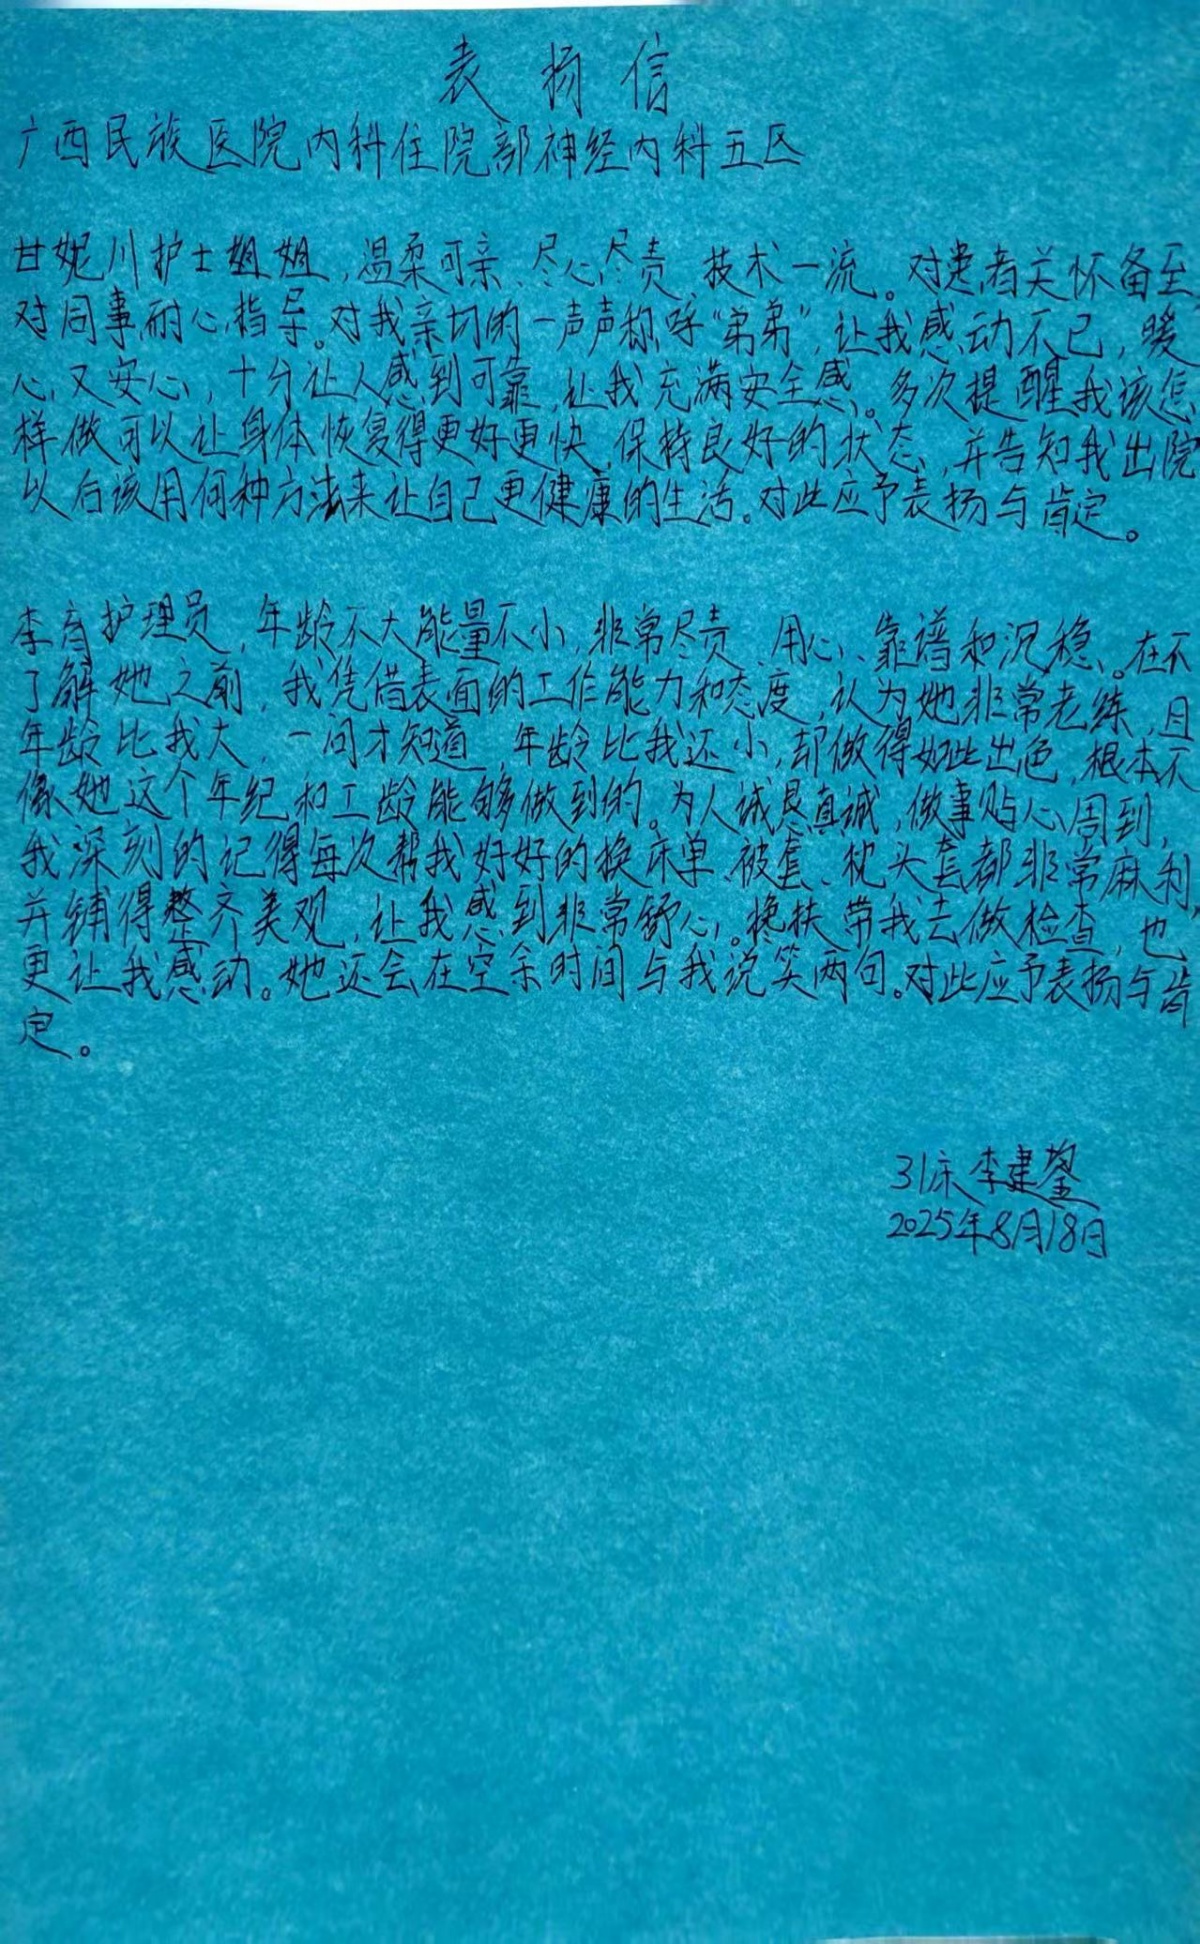 表扬信
广西民族医院内科住院部神经内科五区
甘妮川护士姐姐,温柔可亲、尽心尽责、技术一流。对患者关怀备至
对同事耐心指导。对我亲切的一声声称呼“弟弟”,让我感动不已,暖
心又安心,十分让人感到可靠,让我充满安全感。多次提醒我该怎
样做可以让身体恢复得更好更快,保持良好的状态,并告知我出院
以后该用何种方法来让自己更健康的生活。对此应予表扬与肯定。
李 护理员,年龄不大能量不小,非常尽责、用心、靠谱和沉稳。在不
了解她之前,我凭借表面的工作能力和态度,认为她非常老练,且
年龄比我大,一问才知道,年龄比我还小,却做得如此出色,根本不
像她这个年纪和工龄能够做到的。为人诚恳真诚,做事贴心周到,
我深刻的记得每次帮我好好的换床单、被套、枕头套都非常麻利,
并铺得整齐美观,让我感到非常舒心。搀扶带我去做检查,也
更让我感动。她还会在空余时间与我说笑两句。对此应予表扬与肯
定。
31床 李建鋆
2025年8月18日